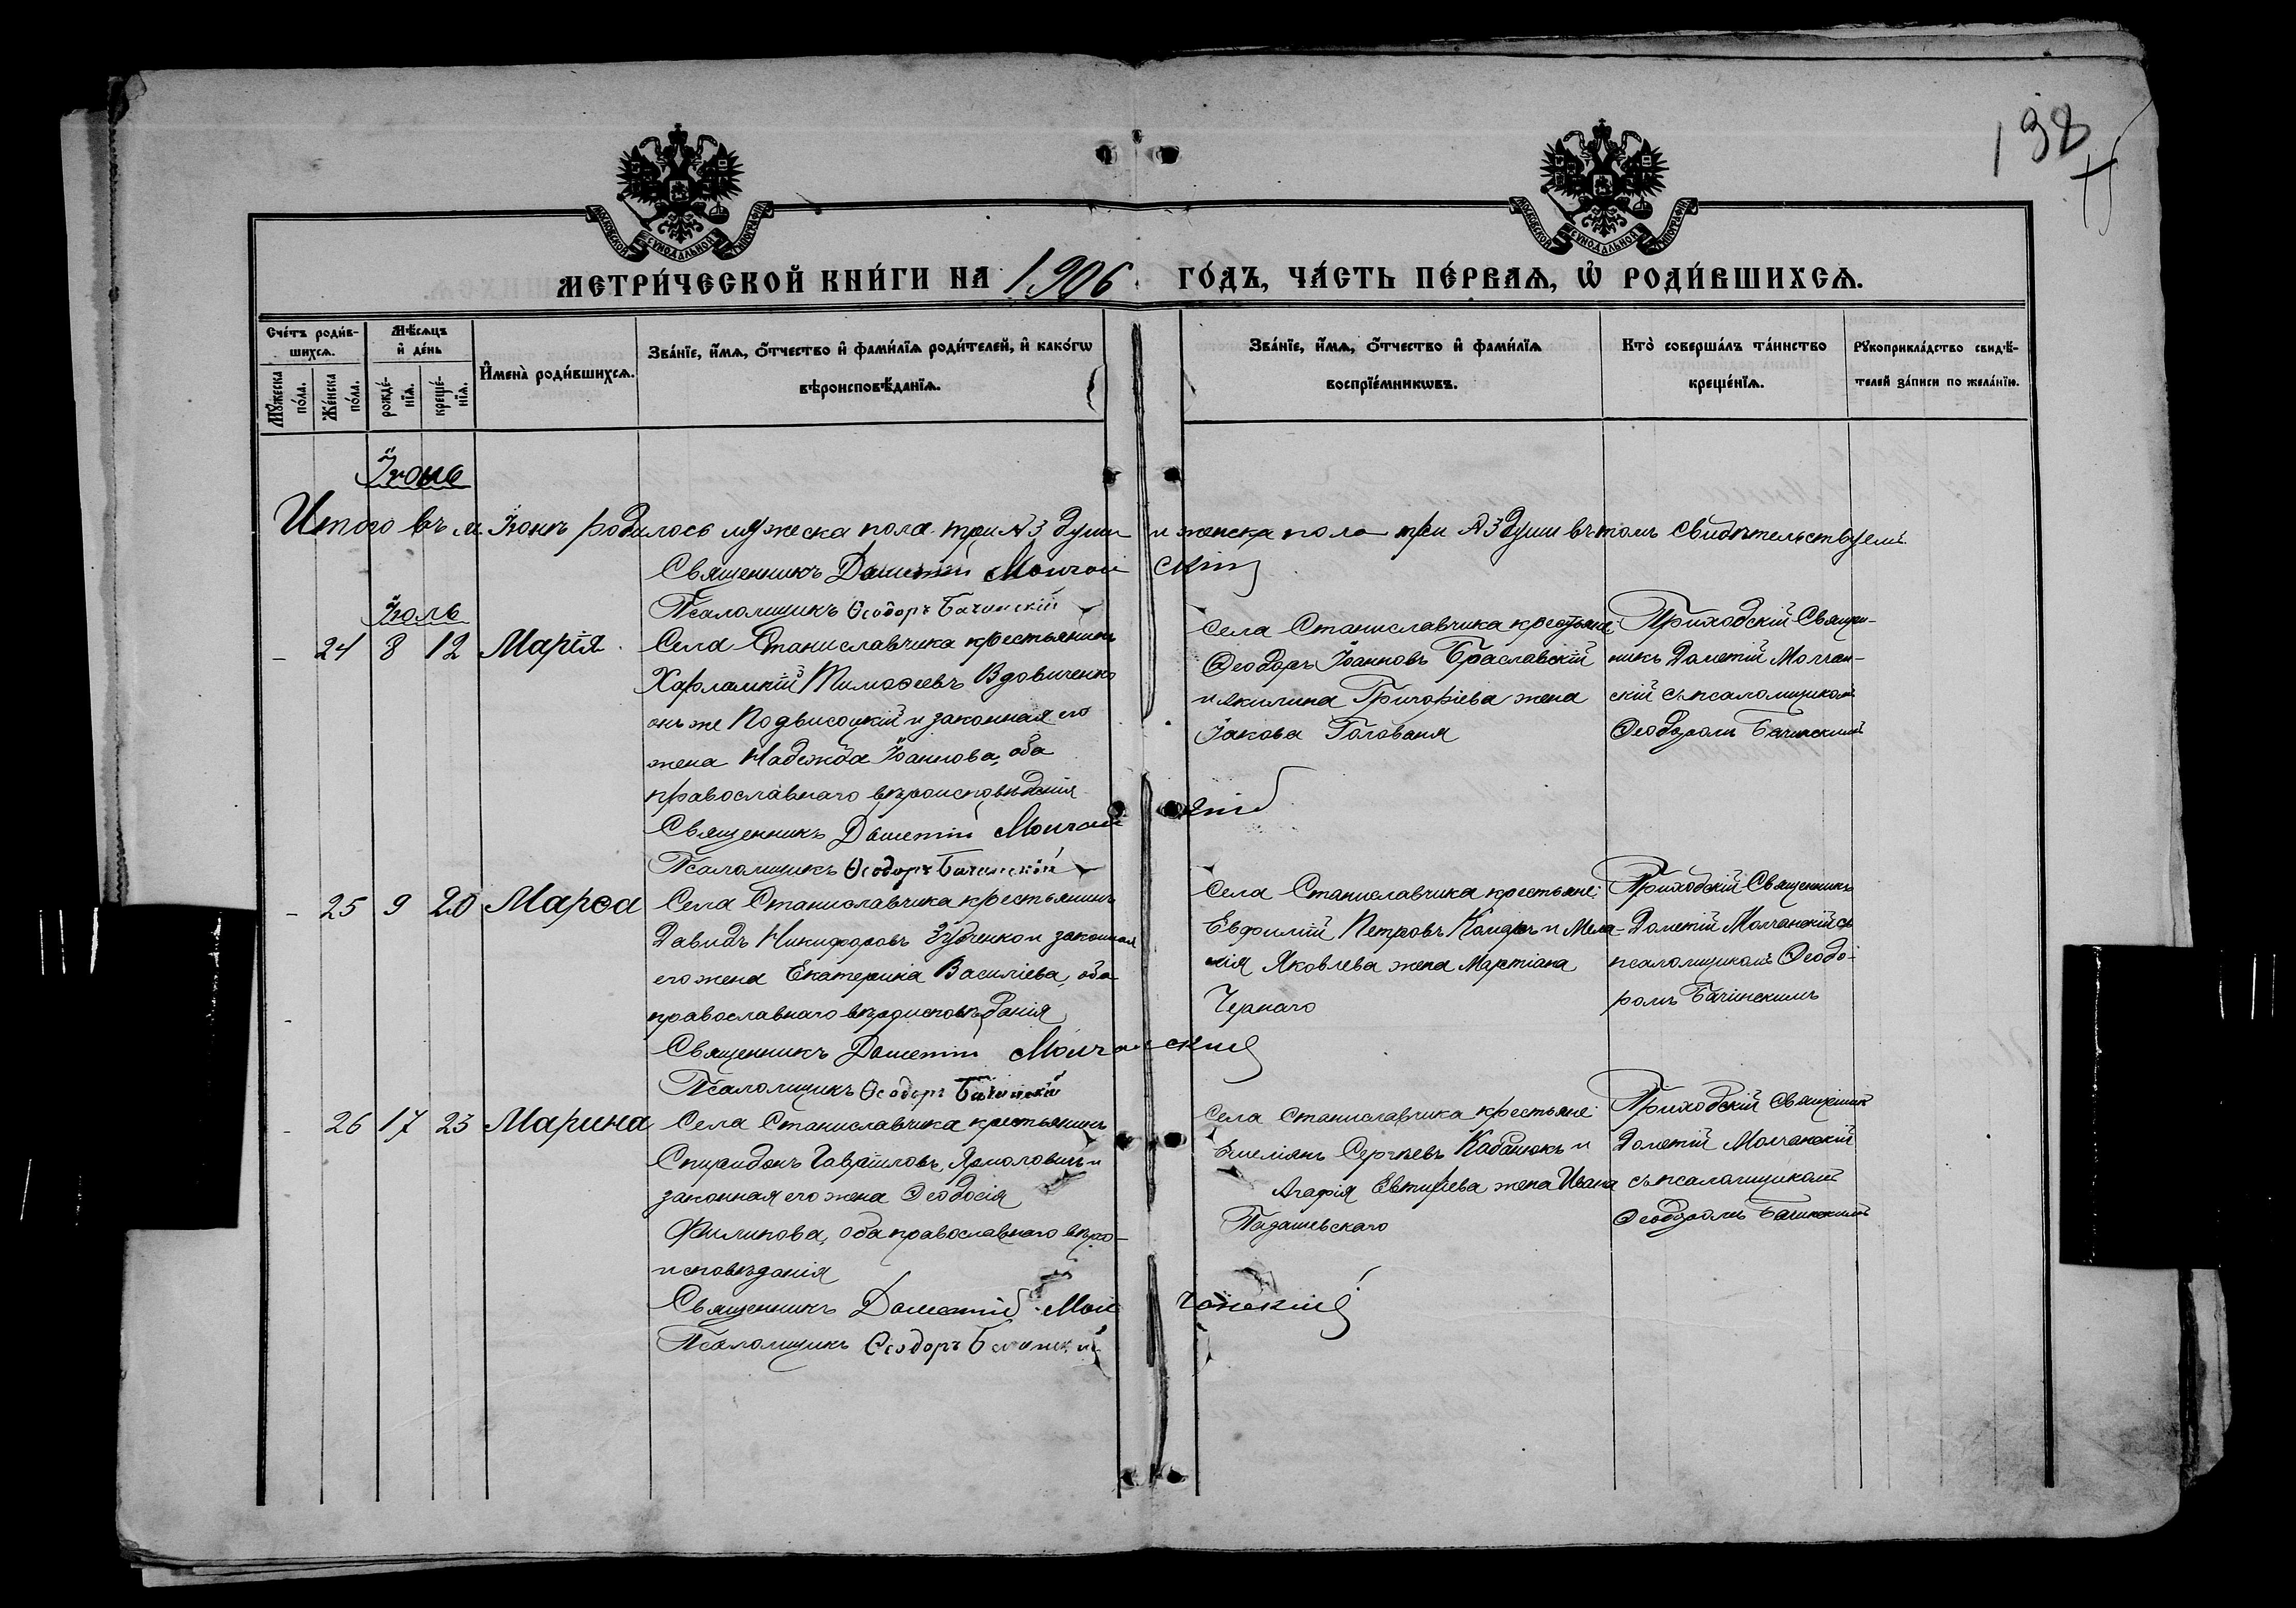 138
МОСКОВСКОЙ СѴНОДАЛЬНОЙ ТИПОГРАФІИ
МОСКОВСКОЙ СѴНОДАЛЬНОЙ ТИПОГРАФІИ
МЕТРИ́ЧЕСКОЙ КНИ́ГИ НА 1906 ГО́ДЪ, ЧА́СТЬ ПЕ́РВАѦ, Ѡ҆ РОДИ́ВШИХСѦ.
Сче́тъ роди́в-
шихсѧ.
Мꙋ́жеска по́ла.
Же́нска по́ла.
Мѣ́сѧцъ
и҆ де́нь
рожде́-
нїѧ.
креще́-
нїѧ.
И҆мена̀ роди́вшихсѧ.
Зва́нїе, и҆́мѧ, ѻ҆́тчество и҆ фами́лїѧ роди́телей, и҆ како́гѡ
вѣроисповѣ́данїѧ.
Зва́нїе, и҆́мѧ, ѻ҆́тчество и҆ фами́лїѧ
воспрїе́мникѡвъ.
Кто̀ соверша́лъ та́инство
креще́нїѧ.
Рꙋкоприкла́дство свидѣ́-
телей за́писи по жела́нїю.
Іюнь
Итого въ м. Іюнѣ родилось мужеска пола три № 3 души и женска пола три № 3 души въ томъ свидѣтельствуемъ
Священникъ Дометій Молчанскій
Псаломщикъ Ѳеодоръ Бачинскій
Іюль
24 8 12 Марія
Села Станиславчика крестьянинъ
Харлампій Тимоѳеевъ Вдовиченко
онъ же Подвысоцкій и законная его
жена Надежда Іоаннова, оба
православнаго вѣроисповѣданія
Священникъ Дометій Молчанскій
Псаломщикъ Ѳеодоръ Бачинскій
Села Станиславчика крестьяне
Ѳеодоръ Іоанновъ Браславскій
и Акилина Григоріева жена
Іакова Голованя
Приходскій Священ-
никъ Дометій Молчан-
скій съ псаломщикомъ
Ѳеодоромъ Бачинскимъ
25 9 20 Марѳа
Села Станиславчика крестьянинъ
Давидъ Никифоровъ Зубченко и законная
его жена Екатерина Василіева, оба
православнаго вѣроисповѣданія
Священникъ Дометій Молчанскій
Псаломщикъ Ѳеодоръ Бачинскій
Села Станиславчика крестьяне:
Евфимій Петровъ и Мела-
нія Яковлева жена Мартіана
Чернаго
Приходскій Священникъ
Дометій Молчанскій съ
псаломщикомъ Ѳеодо-
ромъ Бачинскимъ
26 17 23 Марина
Села Станиславчика крестьянинъ
Спиридонъ Гавріиловъ Ярмоловичъ и
законная его жена Ѳеодосія
Филипова, оба православнаго вѣро-
исповѣданія
Священникъ Дометій Молчанскій
Псаломщикъ Ѳеодоръ Бачинскій
Села Станиславчика крестьяне:
Емеліянъ Сергѣевъ Кабанюкъ и
Агафія Евтиѳіева жена Ивана
Приходскій Священникъ
Дометій Молчанскій
съ псаломщикомъ
Ѳеодоромъ Бачинскимъ